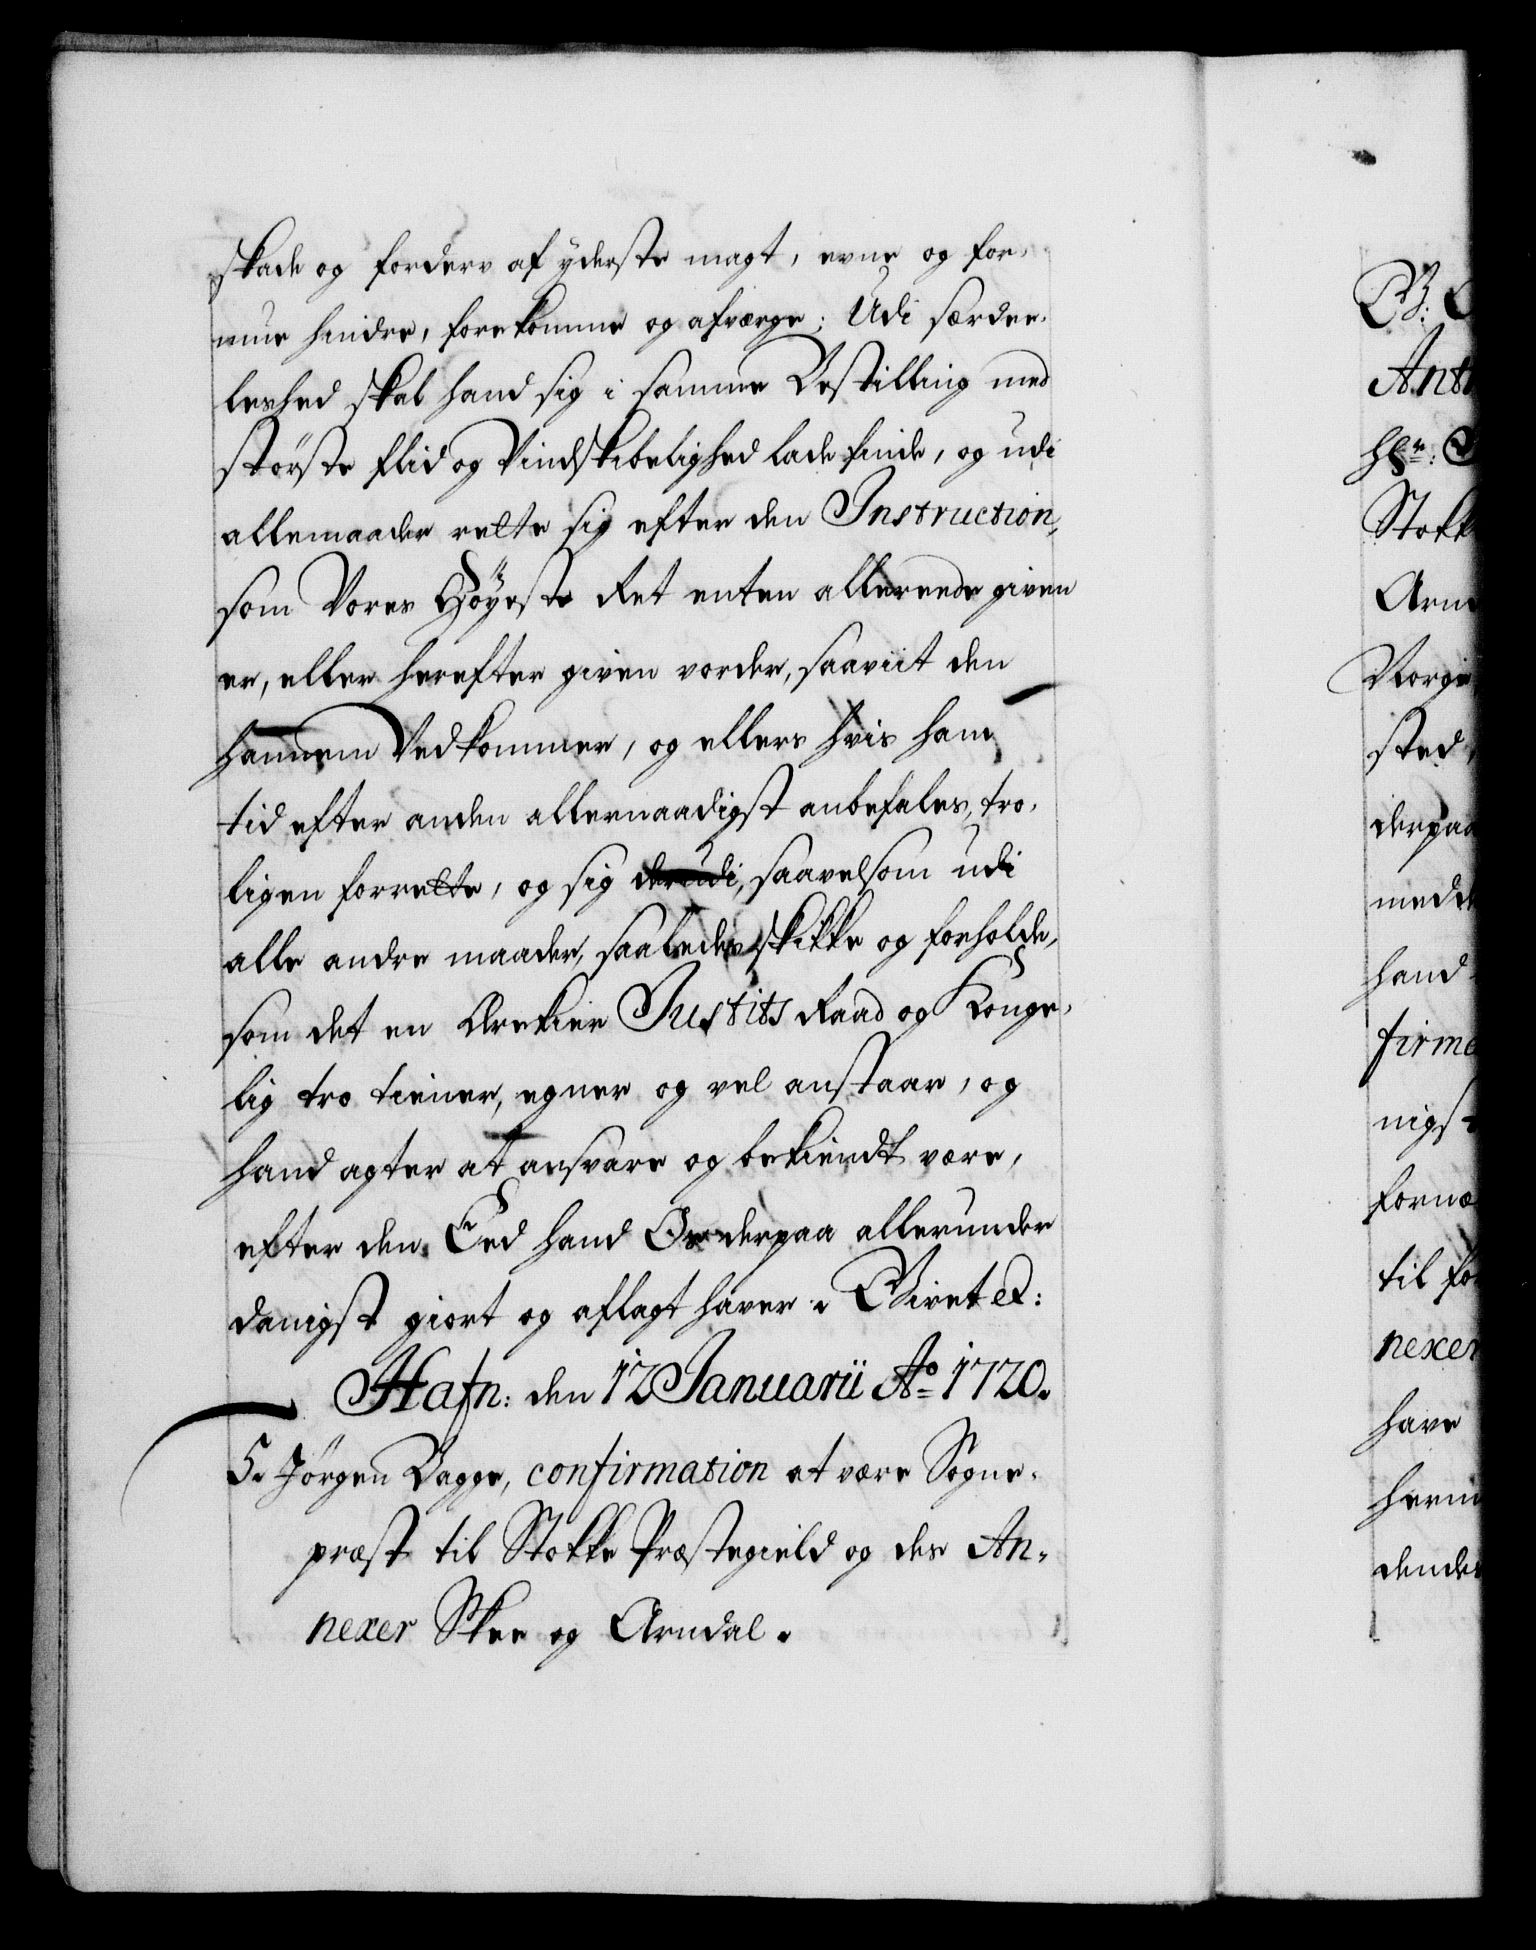 skade og forderv af yderste magt, evne og for-
mue hindre, forekomme og afværge; Udi særde-
leshed skal hand sig i samme Bestilling med
störste flid og Vindskibelighed lade finde, og udi
allemaader rette sig efter den Instruction,
som Vores Höyeste Ret enten allereede given
er, eller herefter given vorder, saaviit den
hannem Vedkommer, og ellers hvis ham
tid efter anden allernaadigst anbefales, tro-
ligen forrette, og sig derudi, saavelsom udi
alle andre maader, saaledes skikke og forholde,
som det en Ærekier Justits Raad og Konge-
lig tro tiener, egner og vel anstaar, og
hand agter at ansvare og bekiendt være,
efter den Eed hand Os derpaa allerunder
danigst giort og aflagt haver. Givet et:
Hafn: den 12 Januarii Ao 1720.
5. Jörgen Bagge, confirmation at være Sogne-
præst til Stokke Præstegield og des An-
nexer Skee og Arndal.
G:
Stokk
Arn
Norge
sted
derpaa
medde
hand
firme
nigst
fornæ
til fo
nexer
have
herin
dendes